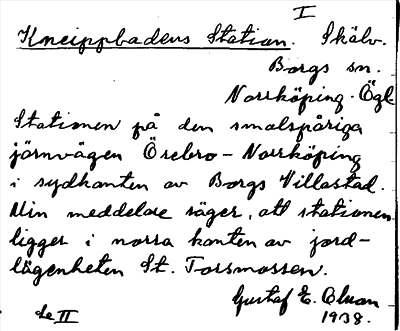 I
Kneippbadens Station. Skälv.
Borgs sn.
Norrköping. Ögl
Stationen på den smalspåriga
järnvägen Örebro – Norrköping
i sydkanten av Borgs Villastad.
Min meddelare säger, att stationen
ligger i norra kanten av jord-
lägenheten St. Torsmossen.
Gustaf E. Bluan
1938.
Se II